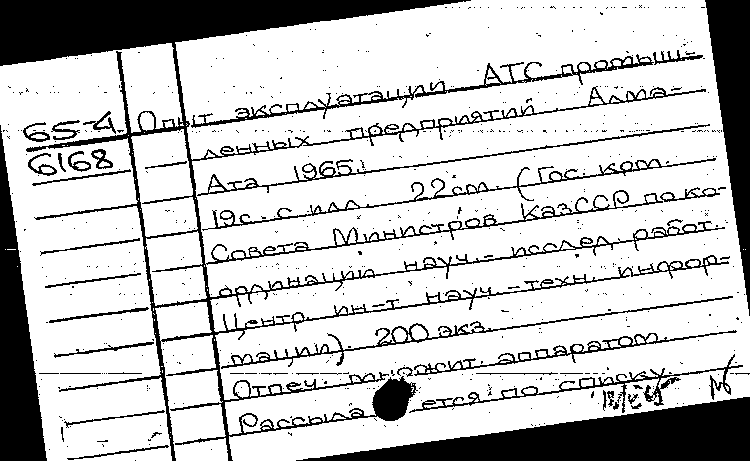 65-4 Опыт эксплуатации АТС промыш-
6168 ленных предприятий. Алма-
Ата, 1965.
19с. с илл. 22см. (Гос. ком.
Совета Министров КазССР по ко-
ординации науч.- исслед. работ.
Центр. ин-т науч.-техн. инфор-
мации). 200 экз.
Отпеч. множит. аппаратом.
Рассылается по списку.